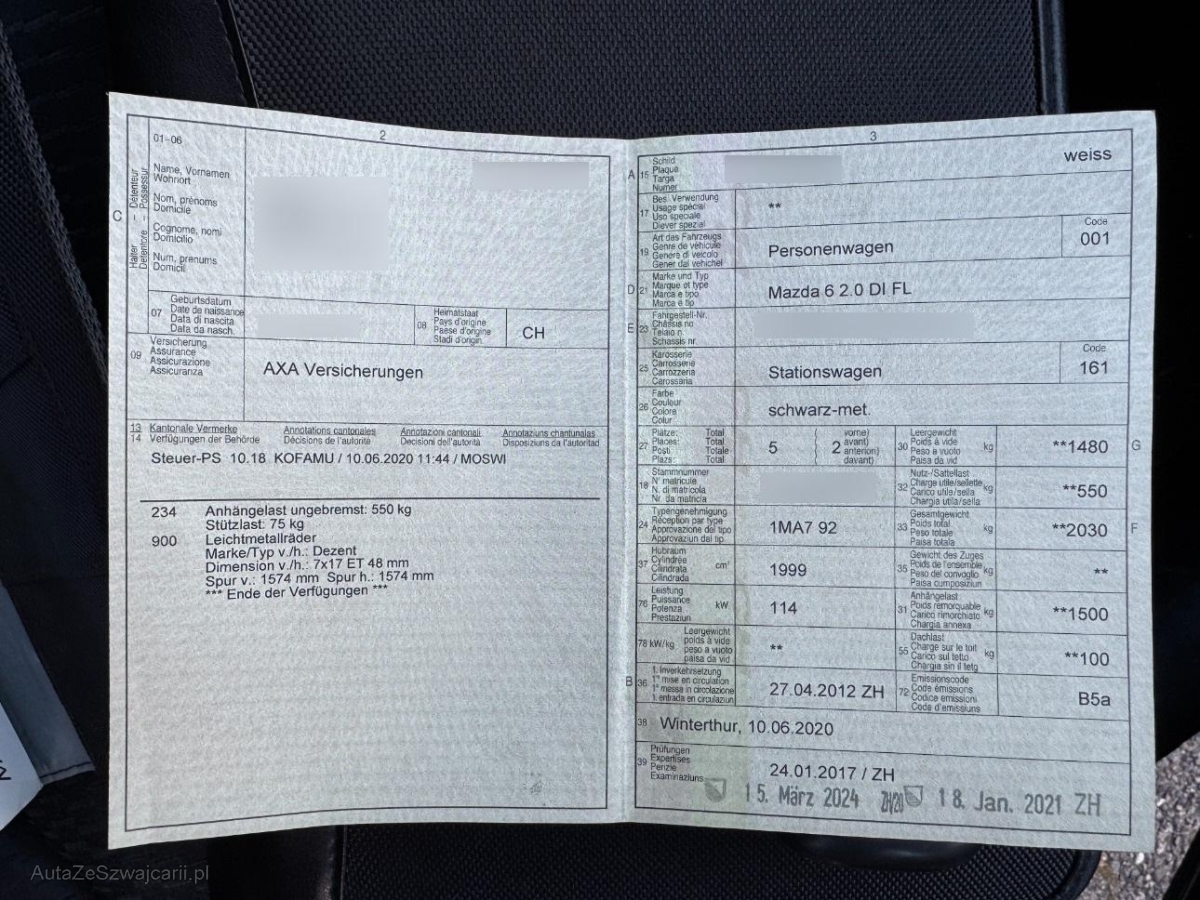 2
01-06
C
Halter - Détenteur
Detentore - Possessur
Name, Vornamen
Wohnort
Nom, prénoms
Domicile
Cognome, nomi
Domicilio
Num, prenums
Domicil
07
Geburtsdatum
Date de naissance
Data di nascita
Data da nasch.
08
Heimatstaat
Pays d'origine
Paese d'origine
Stadi d'origin
CH
09
Versicherung
Assurance
Assicurazione
Assicuranza
AXA Versicherungen
13 Kantonale Vermerke Annotations cantonales Annotazioni cantonali Annotaziuns chantunalas
14 Verfügungen der Behörde Décisions de l'autorité Decisioni dell'autorità Disposiziuns da l'autoritad
Steuer-PS 10.18 KOFAMU / 10.06.2020 11:44 / MOSWI
234 Anhängelast ungebremst: 550 kg
Stützlast: 75 kg
900 Leichtmetallräder
Marke/Typ v./h.: Dezent
Dimension v./h.: 7x17 ET 48 mm
Spur v.: 1574 mm Spur h.: 1574 mm
*** Ende der Verfügungen ***
3
A 15
Schild
Plaque
Targa
Numer
weiss
17
Bes. Verwendung
Usage spécial
Uso speciale
Diever spezial
**
19
Art des Fahrzeugs
Genre de véhicule
Genere di veicolo
Gener dal vehichel
Personenwagen
Code
001
D 21
Marke und Typ
Marque et type
Marca e tipo
Marca e tip
Mazda 6 2.0 DI FL
E 23
Fahrgestell-Nr.
Châssis no
Telaio n.
Schassis nr.
25
Karosserie
Carrosserie
Carrozzeria
Carossaria
Stationswagen
Code
161
26
Farbe
Couleur
Colore
Colur
schwarz-met.
27
Plätze: Total
Places: Total
Posti: Totale
Plazs: Total
5 ( 2 vorne)
avant)
anteriori)
davant)
30
Leergewicht
Poids à vide
Peso a vuoto
Paisa da vid
kg
**1480
G
18
Stammnummer
N° matricule
N. di matricola
Nr. da matricla
32
Nutz-/Sattellast
Charge utile/sellette
Carico utile/sella
Chargia utila/sella
kg
**550
24
Typengenehmigung
Réception par type
Approvazione del tipo
Approvaziun dal tip
1MA7 92
33
Gesamtgewicht
Poids total
Peso totale
Paisa totala
kg
**2030
F
37
Hubraum
Cylindrée
Cilindrata
Cilindrada
cm³
1999
35
Gewicht des Zuges
Poids de l'ensemble
Peso del convoglio
Paisa cumposiziun
kg
**
76
Leistung
Puissance
Potenza
Prestaziun
kW
114
31
Anhängelast
Poids remorquable
Carico rimorchiato
Chargia annexa
kg
**1500
78 kW/kg
Leergewicht
poids à vide
peso a vuoto
paisa da vid
**
55
Dachlast
Charge sur le toit
Carico sul tetto
Chargia sin il tetg
kg
**100
B 36
1. Inverkehrsetzung
1re mise en circulation
1a messa in circolazione
1. entrada en circulaziun
27.04.2012 ZH
72
Emissionscode
Code émissions
Codice emissioni
Code d'emissiuns
B5a
38
Winterthur, 10.06.2020
39
Prüfungen
Expertises
Perizie
Examinaziuns
24.01.2017 / ZH
15. März 2024 ZH/20 18. Jan. 2021 ZH
AutaZeSzwajcarii.pl